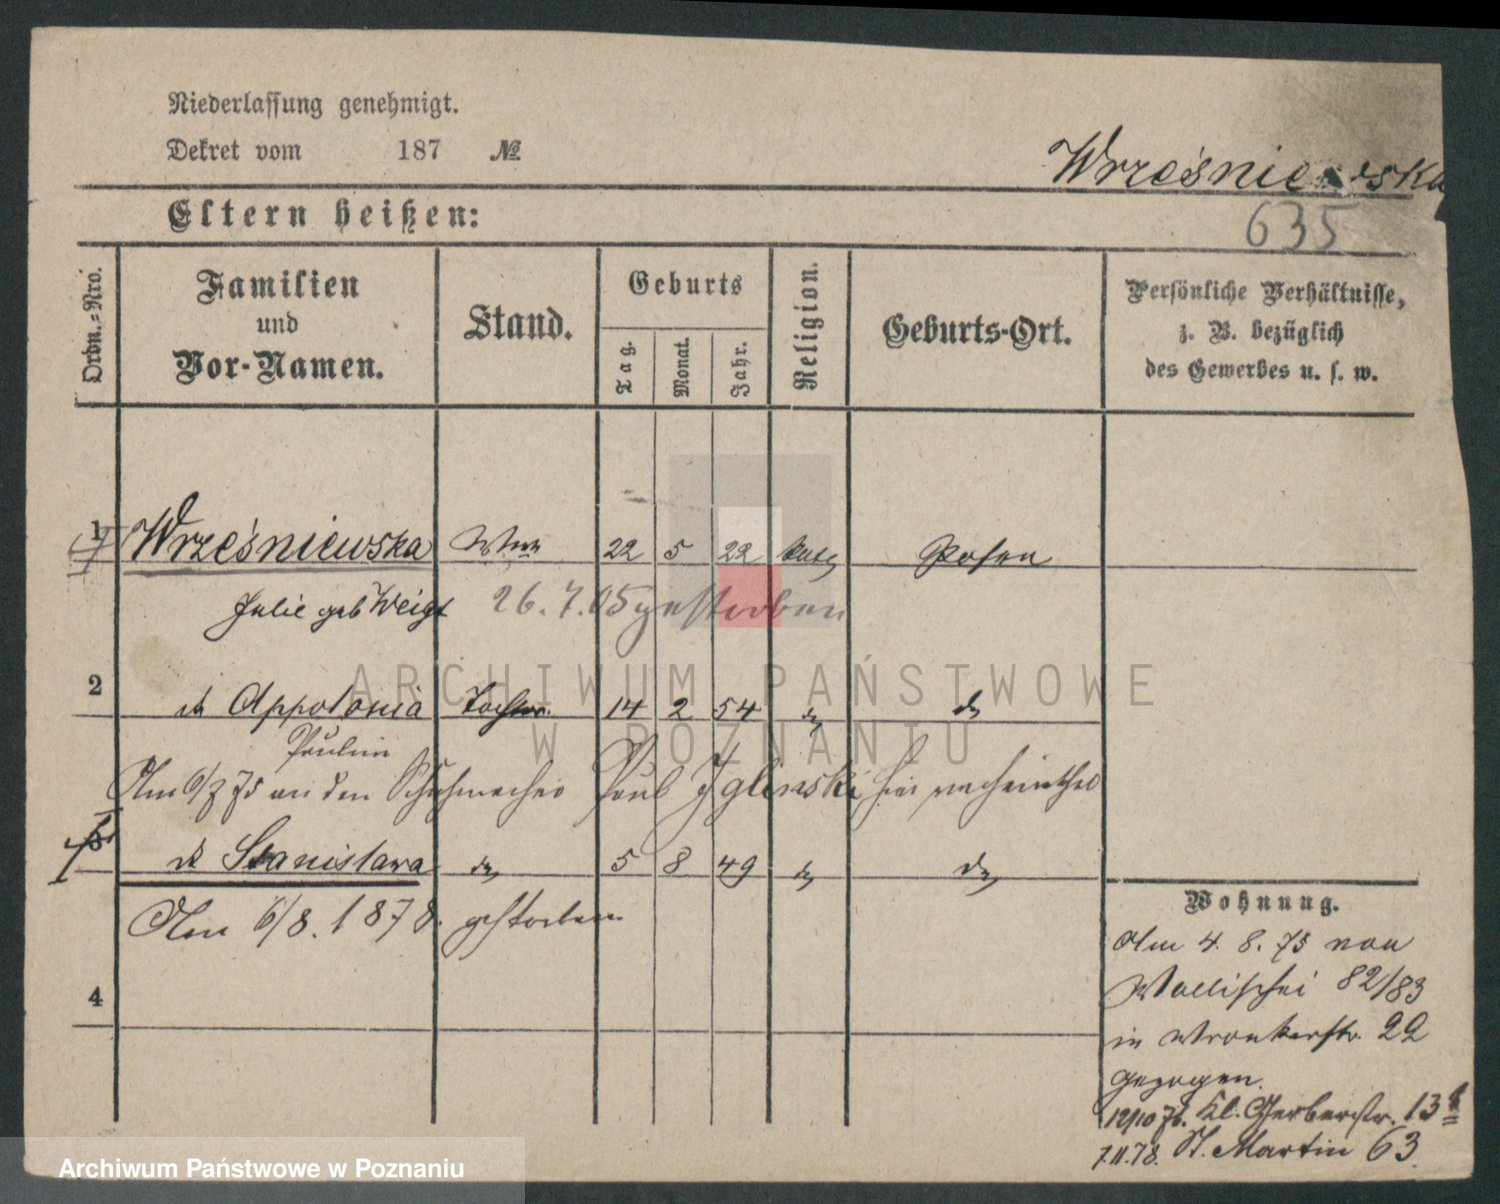 Niederlassung genehmigt.
Dekret vom 187 №
Wrześniewska
635
Eltern heißen:
Ordn.-Nro.
Familien und Vor-Namen.
Stand.
Geburts
Tag.
Monat.
Jahr.
Religion.
Geburts-Ort.
Persönliche Verhältnisse, z. B. bezüglich des Gewerbes u. s. w.
1 Wrześniewska Wwe 22 5 22 kath Posen
Julie geb Weigt 26.7.05 gestorben
2 Appolonia Tochter 14 2 54 do do
Paulin
Am 6/7 75 an den Schuhmacher Paul Iglinski hier verheirathet
3 Stanislawa do 5 8 49 do do
Am 6/8. 1878. gestorben
4
Wohnung.
Am 4. 8. 75 von
Wallischei 82/83
in Wronkerstr. 22
gezogen.
12/10 76. Kl. Gerberstr. 13
7.11.78. St. Martin 63
ARCHIWUM PAŃSTWOWE
W POZNANIU
Archiwum Państwowe w Poznaniu